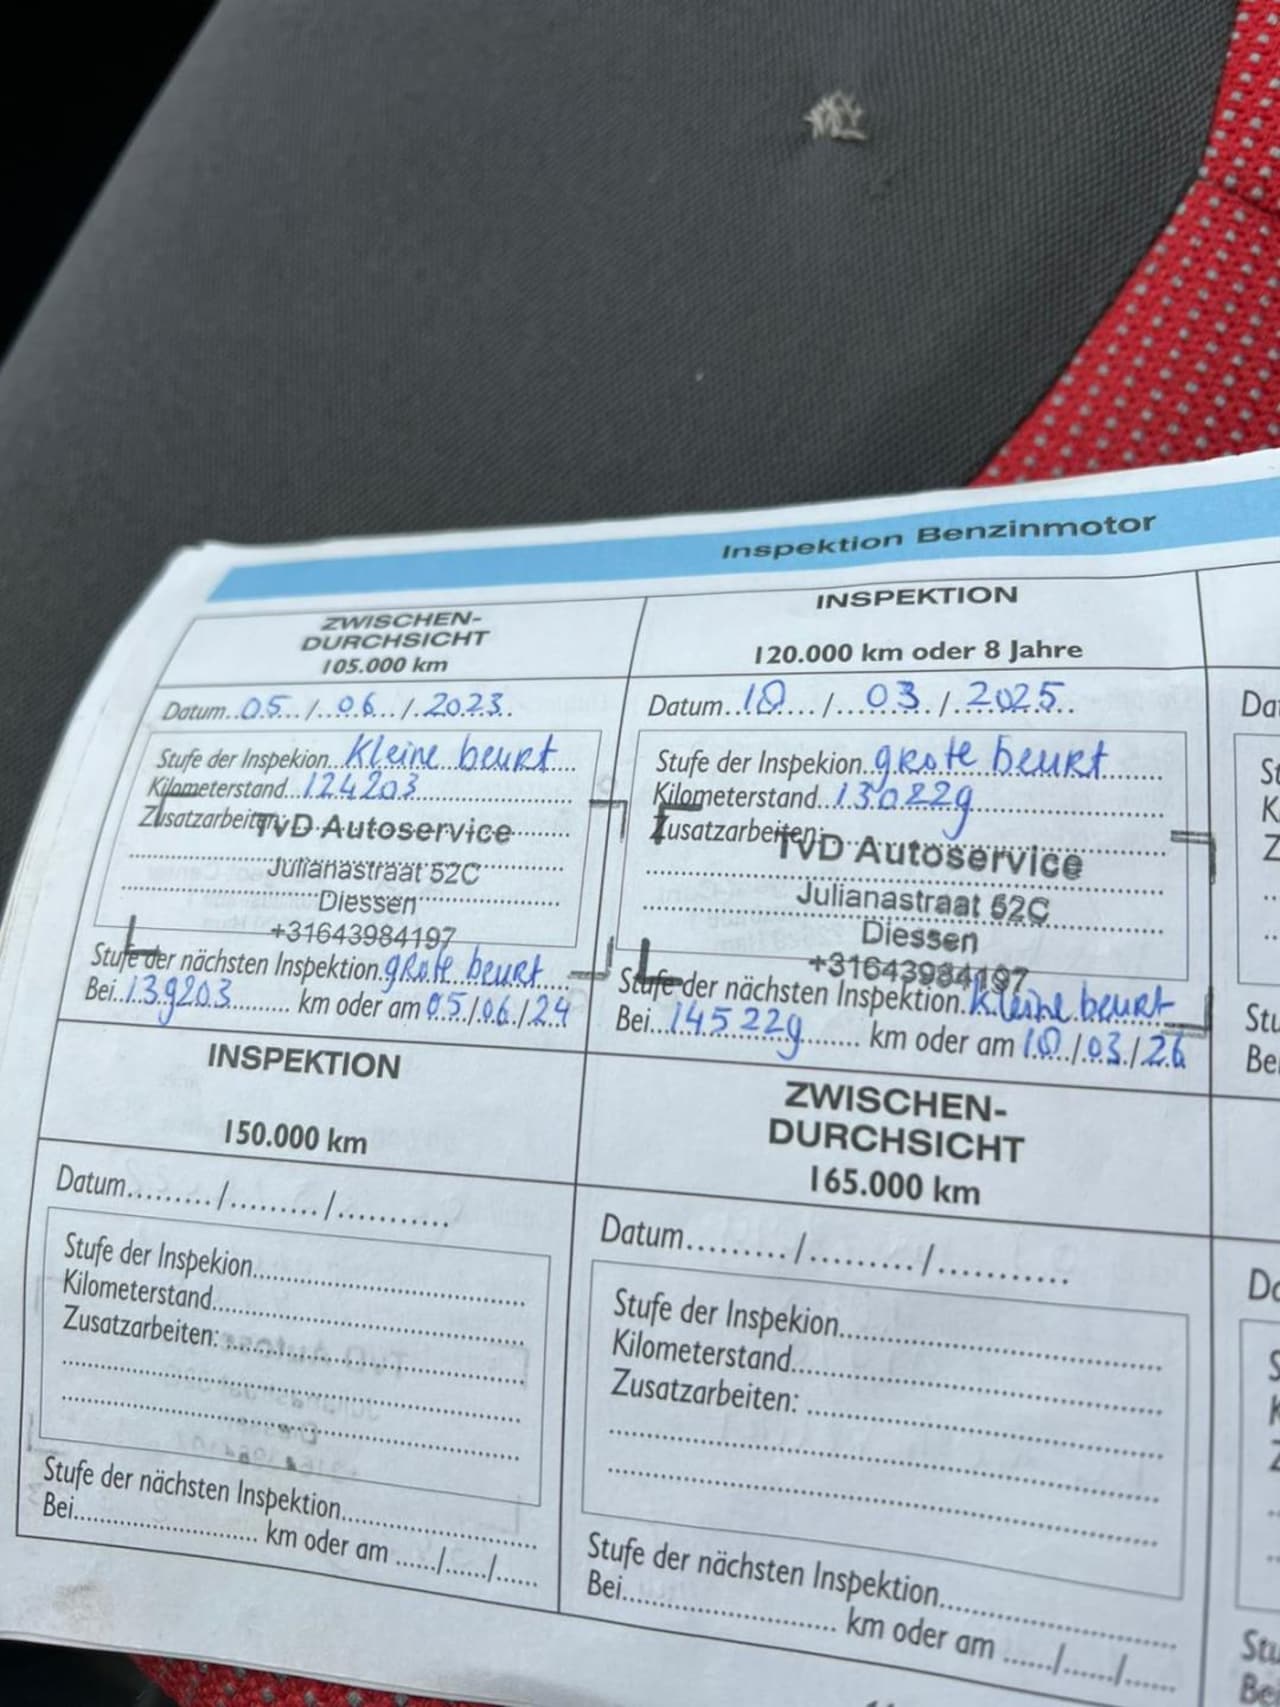 Inspektion Benzinmotor
ZWISCHEN-
DURCHSICHT
105.000 km
Datum..05.../...06.../.2023.
Stufe der Inspekion..Kleine beurt...
Kilometerstand...124203
Zusatzarbeiten:
TvD Autoservice
Julianastraat 52C
Diessen
+31643984197
Stufe der nächsten Inspektion.grote beurt
Bei..139203......... km oder am 05./06./24
INSPEKTION
120.000 km oder 8 Jahre
Datum...10..../....03.../..2025..
Stufe der Inspekion..grote beurt......
Kilometerstand..130229
Zusatzarbeiten:
TvD Autoservice
Julianastraat 52C
Diessen
+31643984197
Stufe der nächsten Inspektion.Kleine beurt
Bei...145229........ km oder am 10../.03./.26
Da
St
K
Z
Stu
Be
INSPEKTION
150.000 km
Datum........./........./...........
Stufe der Inspekion..............................
Kilometerstand..............................
Zusatzarbeiten:..............................
Stufe der nächsten Inspektion......................
Bei............................ km oder am ....../....../......
ZWISCHEN-
DURCHSICHT
165.000 km
Datum........./........./...........
Stufe der Inspekion..............................
Kilometerstand..............................
Zusatzarbeiten: ..............................
Stufe der nächsten Inspektion......................
Bei............................ km oder am ....../....../......
Da
S
K
Z
Stu
Be